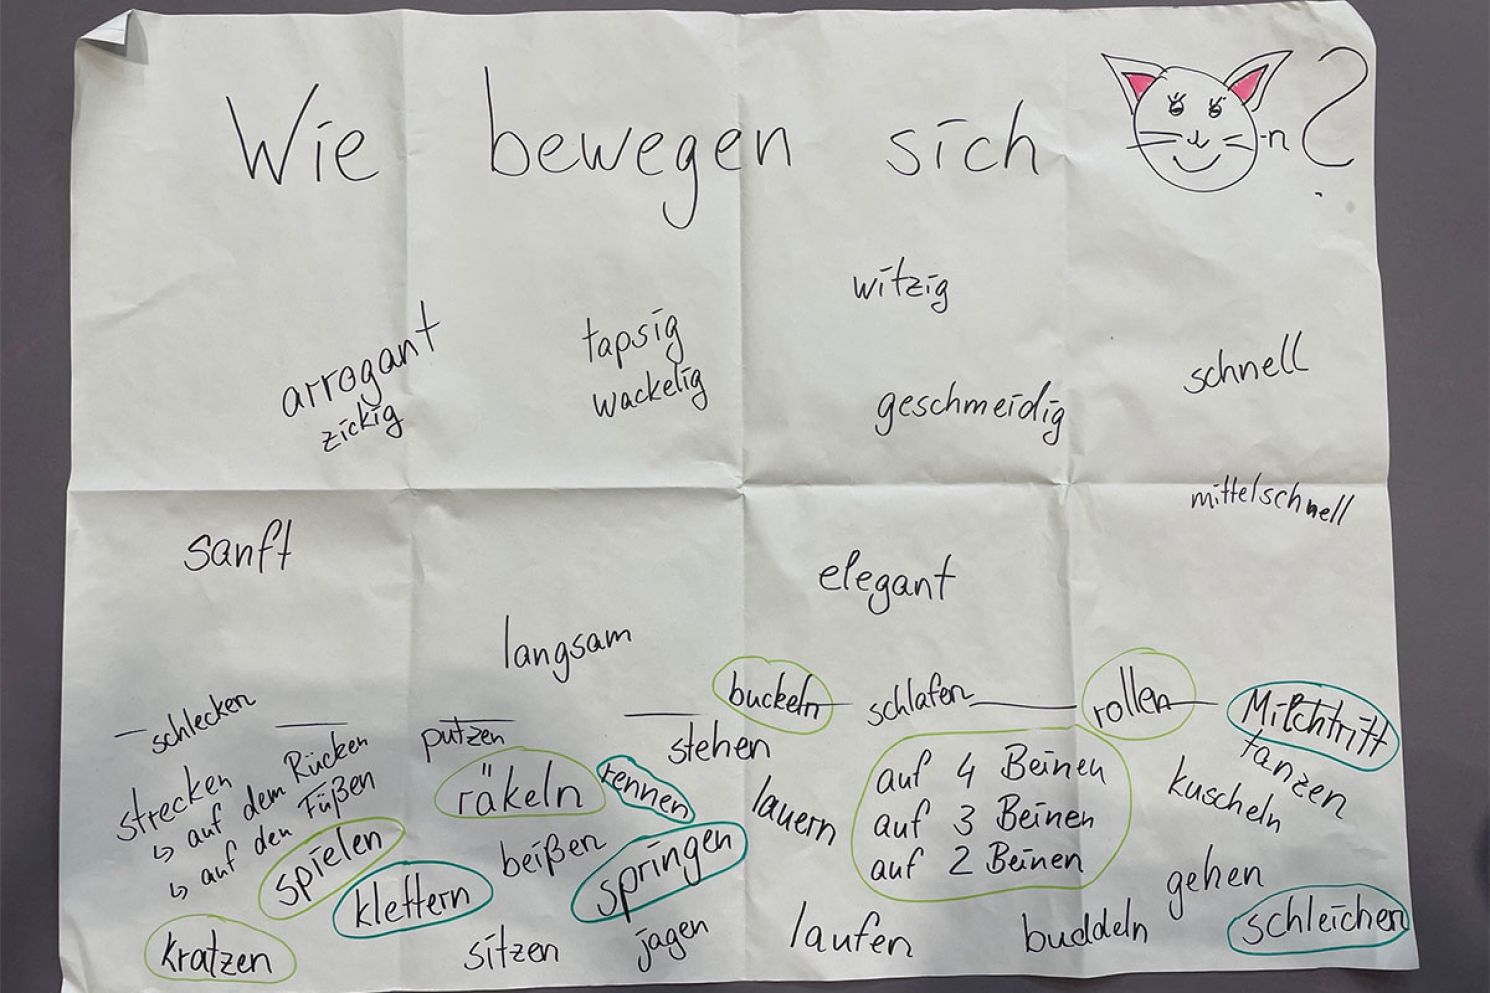 Wie bewegen sich -n ?
witzig
arrogant
zickig
tapsig
wackelig
geschmeidig
schnell
mittelschnell
sanft
elegant
langsam
buckeln
schlafen
rollen
Milchtritt
schlecken
putzen
stehen
tanzen
strecken
↳ auf dem Rücken
↳ auf den Füßen
räkeln
rennen
lauern
auf 4 Beinen
auf 3 Beinen
auf 2 Beinen
kuscheln
spielen
klettern
beißen
springen
gehen
kratzen
sitzen
jagen
laufen
buddeln
schleichen